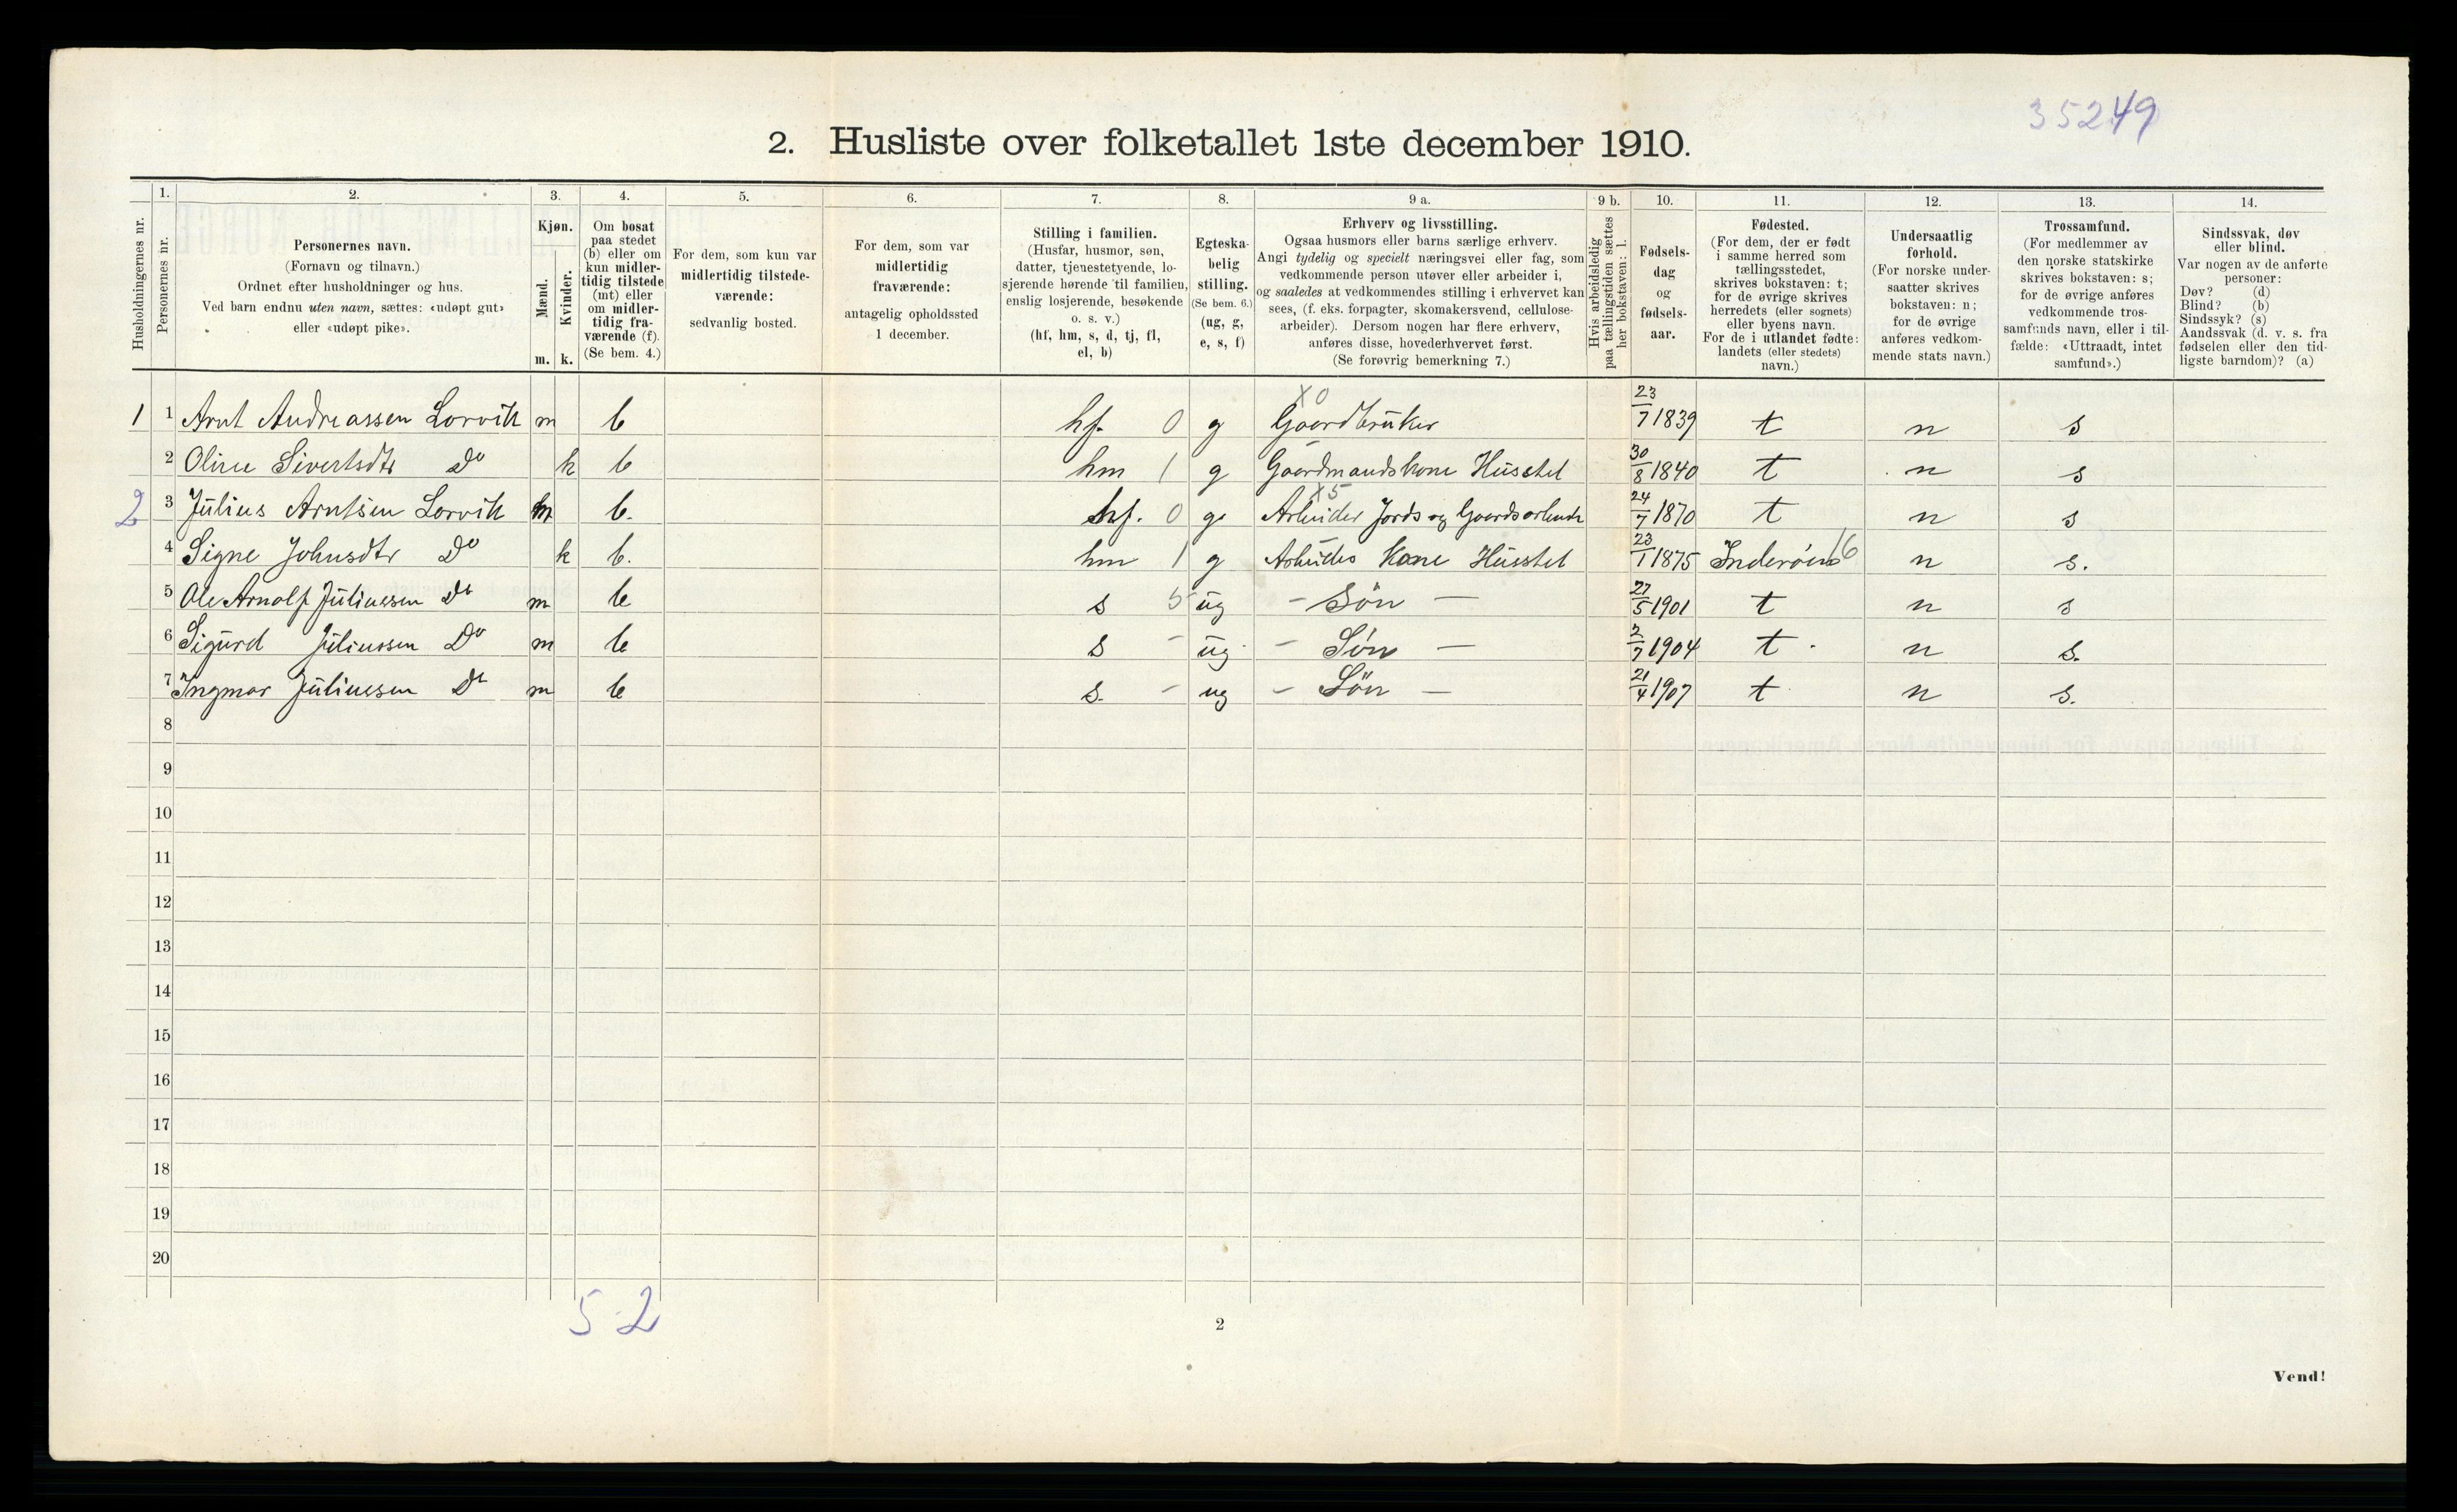 35249
2. Husliste over folketallet 1ste december 1910.
Husholdningernes nr.
1.
Personernes nr.
2.
Personernes navn.
(Fornavn og tilnavn.)
Ordnet efter husholdninger og hus.
Ved barn endnu uten navn, sættes: «udøpt gut»
eller «udøpt pike».
3.
Kjøn.
Mænd.
Kvinder.
m. k.
4.
Om bosat
paa stedet
(b) eller om
kun midler-
tidig tilstede
(mt) eller
om midler-
tidig fra-
værende (f).
(Se bem. 4.)
5.
For dem, som kun var
midlertidig tilstede-
værende:
sedvanlig bosted.
6.
For dem, som var
midlertidig
fraværende:
antagelig opholdssted
1 december.
7.
Stilling i familien.
(Husfar, husmor, søn,
datter, tjenestetyende, lo-
sjerende hørende til familien,
enslig losjerende, besøkende
o. s. v.)
(hf, hm, s, d, tj, fl,
el, b)
8.
Egteska-
belig
stilling.
(Se bem. 6.)
(ug, g,
e, s, f)
9 a.
Erhverv og livsstilling.
Ogsaa husmors eller barns særlige erhverv.
Angi tydelig og specielt næringsvei eller fag, som
vedkommende person utøver eller arbeider i,
og saaledes at vedkommendes stilling i erhvervet kan
sees, (f. eks. forpagter, skomakersvend, cellulose-
arbeider). Dersom nogen har flere erhverv,
anføres disse, hovederhvervet først.
(Se forøvrig bemerkning 7.)
9 b.
Hvis arbeidsledig
paa tællingstiden sættes
her bokstaven: l.
10.
Fødsels-
dag
og
fødsels-
aar.
11.
Fødested.
(For dem, der er født
i samme herred som
tællingsstedet,
skrives bokstaven: t;
for de øvrige skrives
herredets (eller sognets)
eller byens navn.
For de i utlandet fødte:
landets (eller stedets)
navn.)
12.
Undersaatlig
forhold.
(For norske under-
saatter skrives
bokstaven: n;
for de øvrige
anføres vedkom-
mende stats navn.)
13.
Trossamfund.
(For medlemmer av
den norske statskirke
skrives bokstaven: s;
for de øvrige anføres
vedkommende tros-
samfunds navn, eller i til-
fælde: «Uttraadt, intet
samfund».)
14.
Sindssvak, døv
eller blind.
Var nogen av de anførte
personer:
Døv? (d)
Blind? (b)
Sindssyk? (s)
Aandssvak (d. v. s. fra
fødselen eller den tid-
ligste barndom)? (a)
X0
1 1 Arnt Andreassen Lorvik m b hf. 0 g Gaardbruker 23/7 1839 t n s
2 Oline Sivertsdtr Do k b hm 1 g Gaardmandskone Husstel 30/8 1840 t n s
X5
2 3 Julius Arntsen Lorvik m b. hf. 0 g Arbeider Jords og Gaardsarbeide 24/7 1870 t n s
4 Signe Johnsdtr Do k b. hm 1 g Arbeides Kone Husstel 23/1 1875 Inderøen 16 n s.
5 Ole Arnolf Juliussen Do m b s 5 ug - Søn - 27/5 1901 t n s
6 Sigurd Juliussen Do m b s - ug - Søn - 2/7 1904 t n s.
7 Ingmar Juliussen Do m b s. - ug - Søn - 21/4 1907 t n s.
8
9
10
11
12
13
14
15
16
17
18
19
20
5 2
2
Vend!